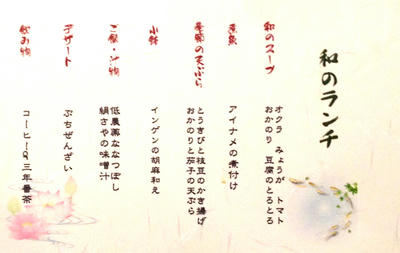 和のランチ
和のスープ
オクラ みょうが トマト
おかのり 豆腐のとろとろ
煮魚
アイナメの煮付け
季節の天ぷら
とうきびと枝豆のかき揚げ
おかのりと茄子の天ぷら
小鉢
インゲンの胡麻和え
ご飯・汁物
低農薬ななつぼし
絹さやの味噌汁
デザート
ぷちぜんざい
飲み物
コーヒーor三年番茶